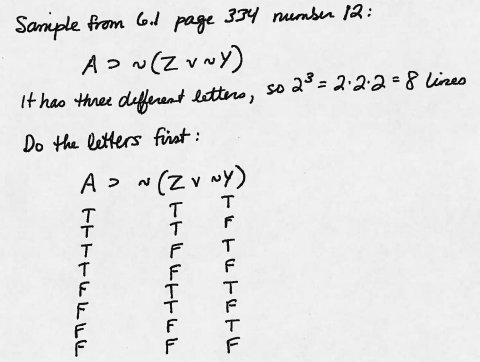 Sample from 6.1 page 334 number 12:
A ⊃ ~(Z v ~Y)
It has three different letters, so 2³ = 2·2·2 = 8 lines
Do the letters first:
A ⊃ ~(Z v ~Y)
T T T
T T F
T F T
T F F
F T T
F T F
F F T
F F F